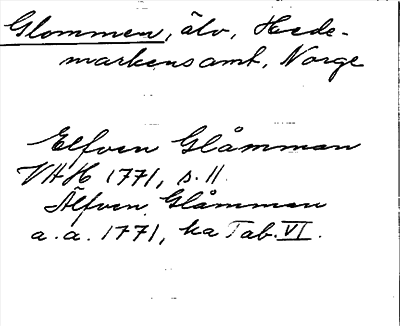 Glommen, älv, Hede-
markens amt, Norge
Elfven Glåmman
VHH 1771, s. 11.
Älfven Glåmman
a. a. 1771, ka Tab. VI.